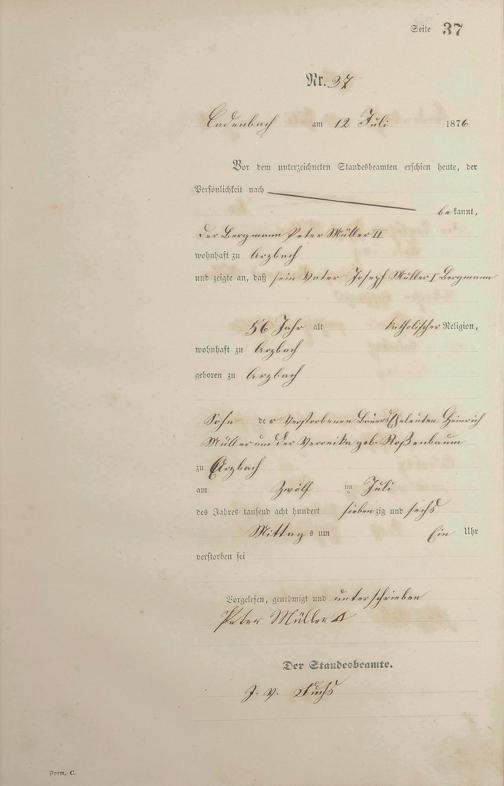 Seite 37
Nr. 37
Cadenbach am 12 Juli 1876
Vor dem unterzeichneten Standesbeamten erschien heute, der
Persönlichkeit nach
bekannt,
der Bergmann Peter Müller II
wohnhaft zu Arzbach
und zeigte an, daß sein Vater Joseph Müller I Bergmann
56 Jahr alt katholischer Religion,
wohnhaft zu Arzbach
geboren zu Arzbach
Sohn der verstorbenen Eheleuten Heinrich
Müller und der Veronika geb.
zu Arzbach
am zwölf ten Juli
des Jahres tausend acht hundert siebenzig und sechs
Mittags um Ein Uhr
verstorben sei
Vorgelesen, genehmigt und unterschrieben
Peter Müller
Der Standesbeamte.
J. V. Fuchs
Form. C.